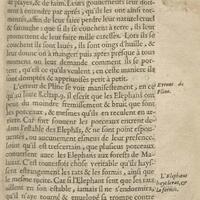 te playes, & de faim. Leurs gouuerneurs leur don-
nent à entendre par apres, qu'ils les ont ainsi tour-
mentés, affin de leur faire perdre leur naturel cruel
& farouche: que s'ils se couchent à terre, ils leur
promettent de leur faire mille caresses. Lors ils se
couchent ils sont battus, ils sont oingts d'huile, &
leur donne on à manger: puis apres presque à tous
moments on leur demande comment ils se por-
tent, & est ce qu'ils veulent, en ceste maniere ils
sont domptés & appriuoisés petit à petit.
L'erreur de Pline se voit manifestement, en ce
qu'au liure &chap. 9. il escrit que les Elephants ont
peur du moindre fremissement & bruit que font
les porceaux, & mesmes qu'ils en reculent en ar-
riere. Car
frere souuent les porceaux entrent de-
dans l'estable des Elephãs, & ne font sonne-
ment, ou aucunement esmeu de leur presence.
Ioint qu'il est trescertain, que plusieurs porceaux
conuersent auec les Elephants aux forests de Ma-
lauar. C'est toutesfois chose veritable qu'ils hayss
sent estrangement les rats & les formis, ainsi que
le mesme recite. Car si l'Elephant sent que les rats
aillent en son estable, iamais il ne s'endormira,
qu'il n'aye tourné & enuelopé sa trompe contre
Erreur de
Pline.
L'Elephant
hayt le rat, &
la formis.